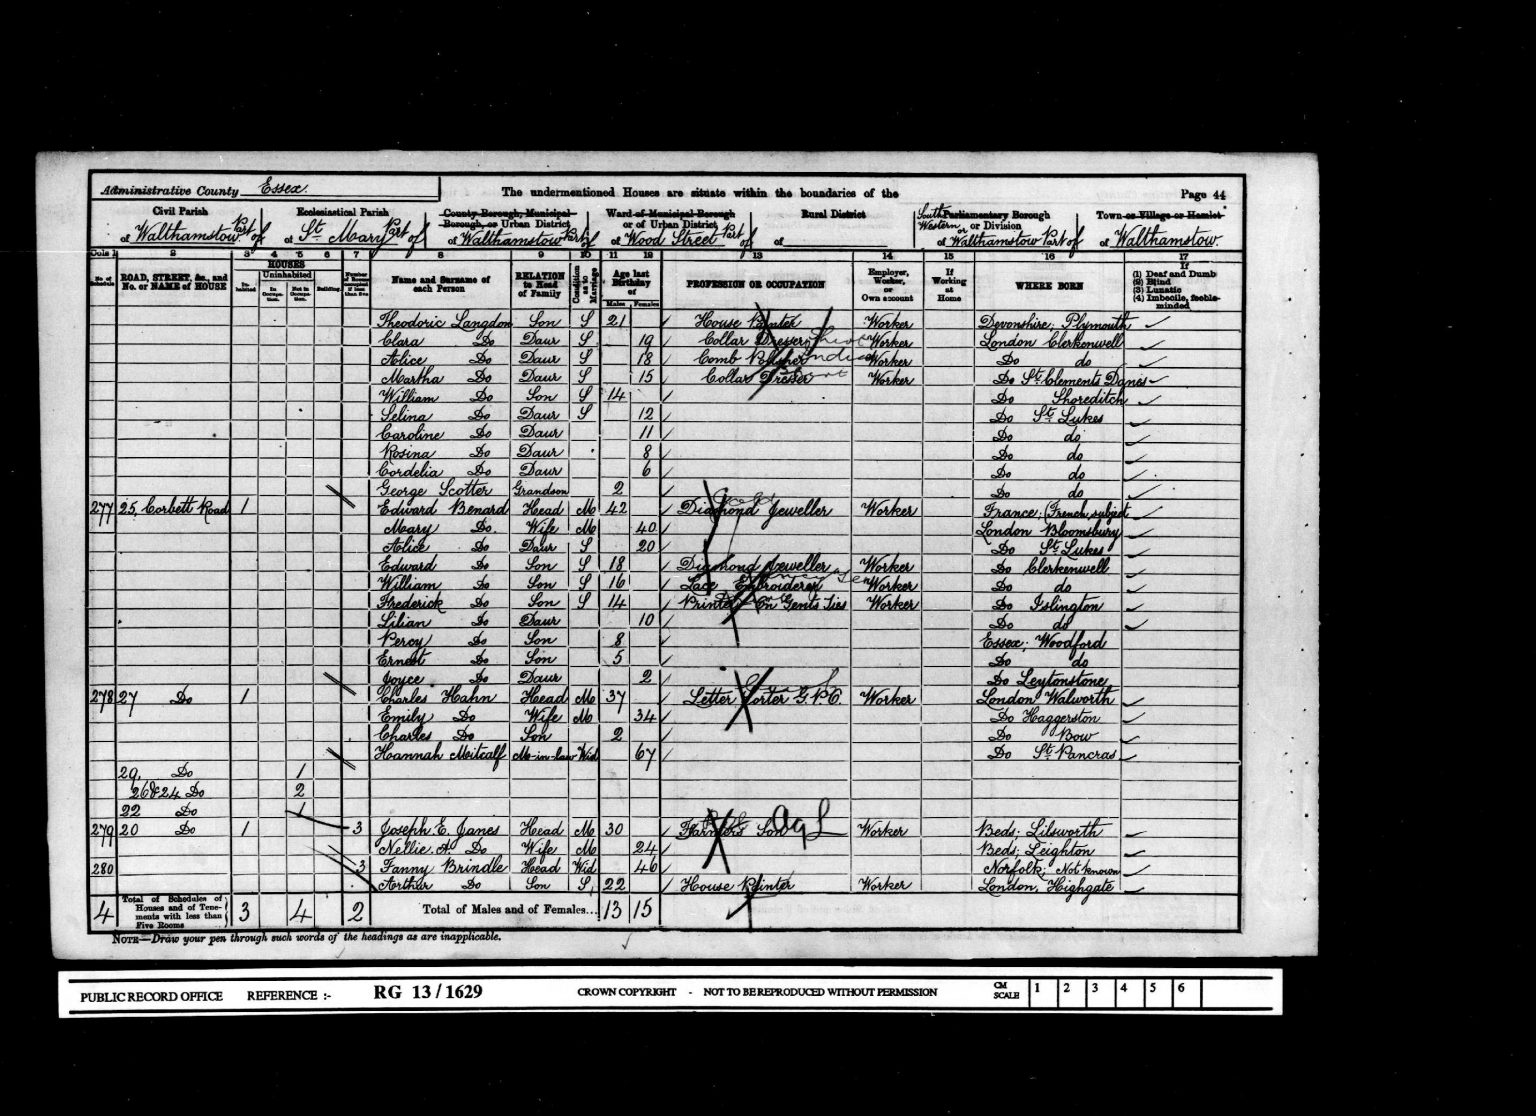 Administrative County Essex.
The undermentioned Houses are situate within the boundaries of the
Page 44
Civil Parish
of Walthamstow Part of
Ecclesiastical Parish
of St. Mary Part of
County Borough, Municipal Borough, or Urban District
of Walthamstow Part of
Ward of Municipal Borough or of Urban District
of Wood Street Part of
Rural District
of
South Western Parliamentary Borough or Division
of Walthamstow Part of
Town or Village or Hamlet
of Walthamstow.
Cols 1 2 3 4 5 6 7 8 9 10 11 12 13 14 15 16 17
No. of Schedule
ROAD, STREET, &c., and No. or NAME of HOUSE
HOUSES
Inhabited
Uninhabited
In Occupation.
Not in Occupation.
Building.
Number of Rooms occupied if less than five
Name and Surname of each Person
RELATION to Head of Family
Condition as to Marriage
Age last Birthday of
Males Females
PROFESSION OR OCCUPATION
Employer, Worker, or Own account
If Working at Home
WHERE BORN
If (1) Deaf and Dumb (2) Blind (3) Lunatic (4) Imbecile, feeble-minded
Theodoric Langdon Son S 21 House Painter Worker Devonshire; Plymouth
Clara Do Daur S 19 Collar Dresser Worker London Clerkenwell
Alice Do Daur S 18 Comb Polisher Worker Do do
Martha Do Daur S 15 Collar Dresser Worker Do St. Clements Danes
William Do Son S 14 Do Shoreditch
Selina Do Daur S 12 Do St. Lukes
Caroline Do Daur 11 Do do
Rosina Do Daur 8 Do do
Cordelia Do Daur 6 Do do
George Scotter Grandson 2 Do do
277 25, Corbett Road 1 Edward Benard Head M 42 Diamond Jeweller Worker France; (French subject
Mary Do. Wife M 40 London Bloomsbury
Alice Do Daur S 20 Do St. Lukes
Edward Do Son S 18 Diamond Jeweller Worker Do Clerkenwell
William Do Son S 16 Lace Embroiderer Worker Do do
Frederick Do Son S 14 Printer on Gents Ties Worker Do Islington
Lilian Do Daur 10 Do do
Percy Do Son 8 Essex; Woodford
Ernest Do Son 5 Do do
Joyce Do Daur 2 Do Leytonstone
278 27 Do 1 Charles Hahn Head M 37 Letter Sorter G.P.O. Worker London Walworth
Emily Do Wife M 34 Do Haggerston
Charles Do Son 2 Do Bow
Hannah Meitcalf M-in-law Wid 67 Do St. Pancras
29, Do 1
26 & 24 Do 2
22 Do 1
279 20 Do 1 3 Joseph. E. Janes Head M 30 Farmers Son Ag L Worker Beds; Lilsworth
Nellie. A. Do Wife M 24 Beds; Leighton
280 3 Fanny Brindle Head Wid 46 Norfolk; Not known
Arthur Do Son S 22 House Painter Worker London, Highgate
4 Total of Schedules of Houses and of Tenements with less than Five Rooms 3 4 2 Total of Males and of Females... 13 15
NOTE—Draw your pen through such words of the headings as are inapplicable.
PUBLIC RECORD OFFICE REFERENCE :- RG 13 / 1629 CROWN COPYRIGHT - NOT TO BE REPRODUCED WITHOUT PERMISSION CM SCALE 1 2 3 4 5 6